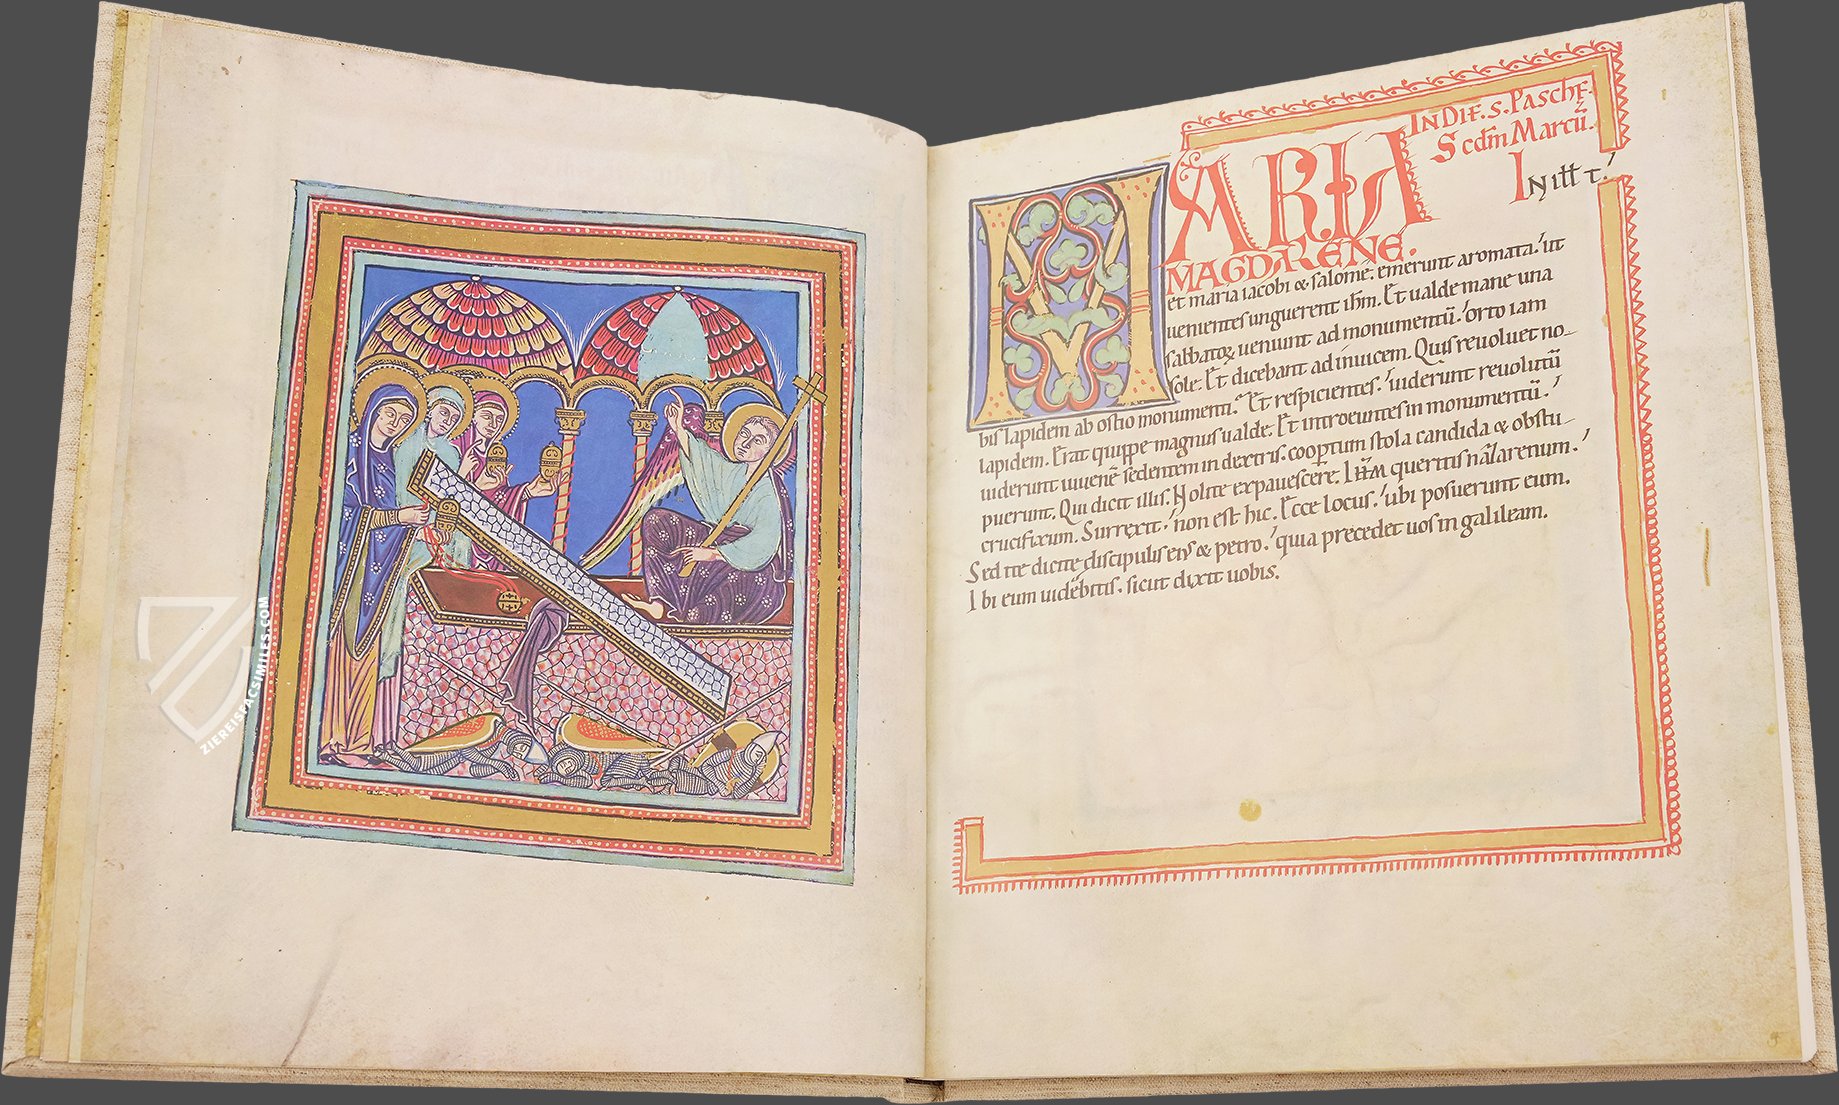 ZIEREISFACSIMILES.COM
IN DIE. S. PASCHE.
Scdm Marcū.
IN ILL T.
MARIA
MAGDALENE.
et maria iacobi & salome. emerunt aromata. ut
uenientes unguerent ihm. Et ualde mane una
sabbatoꝝ ueniunt ad monumentū. orto iam
sole. Et dicebant ad inuicem. Quis reuoluet no-
bis lapidem ab ostio monumenti. Et respicientes. uiderunt reuolutū
lapidem. Erat quippe magnus ualde. Et introeuntes in monumentū.
uiderunt iuuenē sedentem in dextris. coopertum stola candida & obstu-
puerunt. Qui dicit illis. Nolite expauescere. Ihm queritis nazarenum.
crucifixum. Surrexit. non est hic. Ecce locus. ubi posuerunt eum.
Sed ite dicite discipulis eius & petro. quia precedet uos in galileam.
Ibi eum uidebitis. sicut dixit uobis.